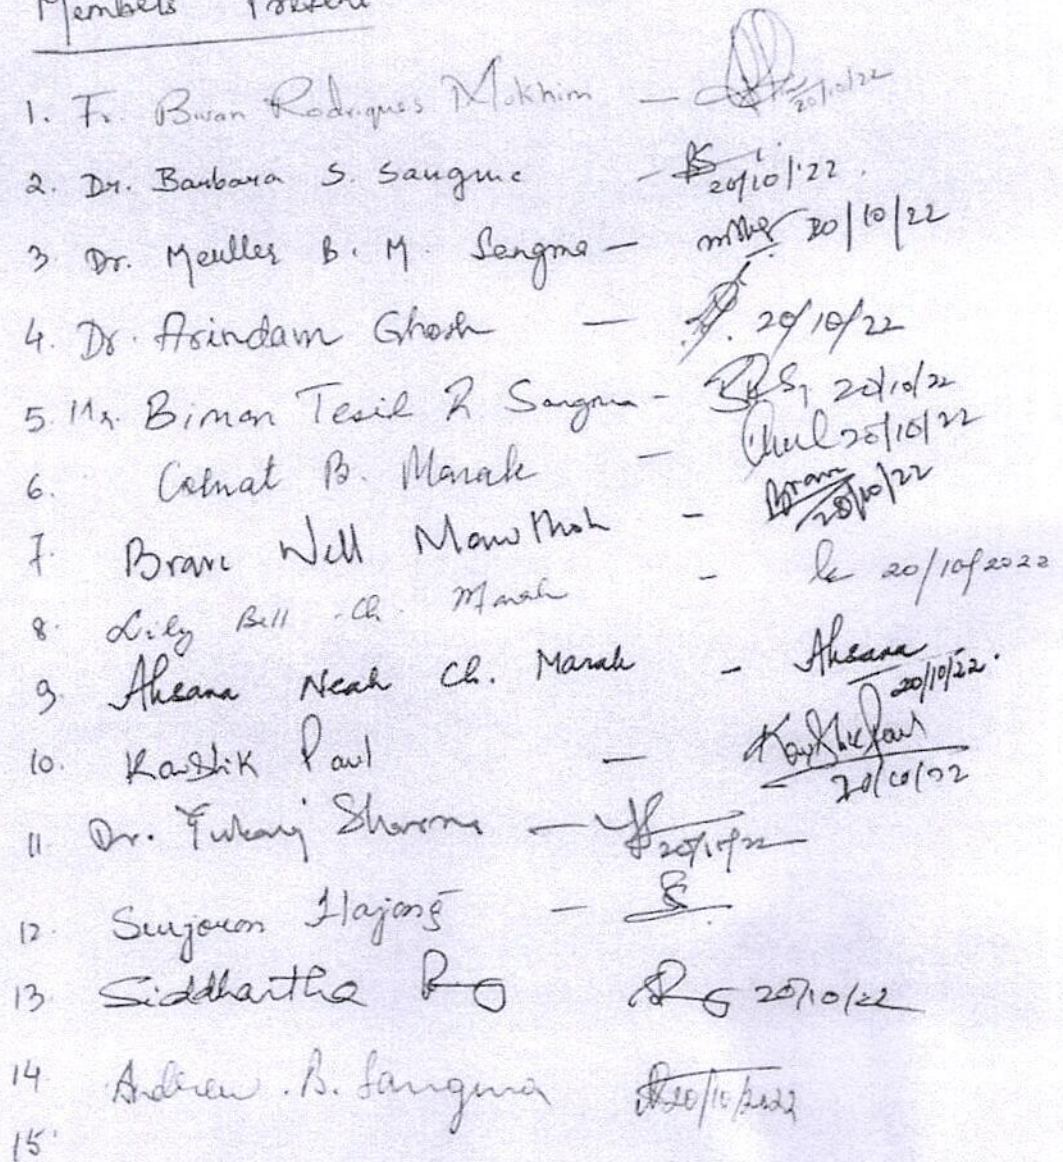 Members Present
1. Fr. Bivan Rodriques Mukhim — 20/10/22
2. Dr. Barbara S. Sangma — 20/10/'22.
3. Dr. Meuller B. M. Sangma — 20/10/22
4. Dr. Arindam Ghosh — 20/10/22
5. Mr. Biman Tesil R. Sangma - 20/10/22
6. B. Marak — 20/10/22
7. Brave Well Mawthoh - Brave 20/10/22
8. Lily Bell Ch. Marak - 20/10/2022
9. Ahsana Neah Ch. Marak - Ahsana 20/10/22.
10. Kaushik Paul — Kaushik Paul 20/10/22
11. Dr. Sharma — 20/10/22
12. Surjoron Hajong —
13. Siddhartha 20/10/22
14. Andrew. B. Sangma 20/10/2022
15.